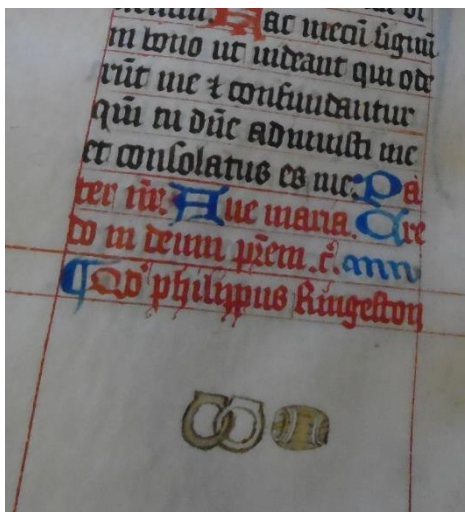 Fac mecū signū
in bono ut uideant qui ode
rūt me ⁊ confundantur
qm̄ tu dn̄e adiuuisti me
et consolatus es me: Pa
ter nr̄. Aue maria. Cre
do in deum pr̄em. c̄.
¶ Qd' philippus Ringeston